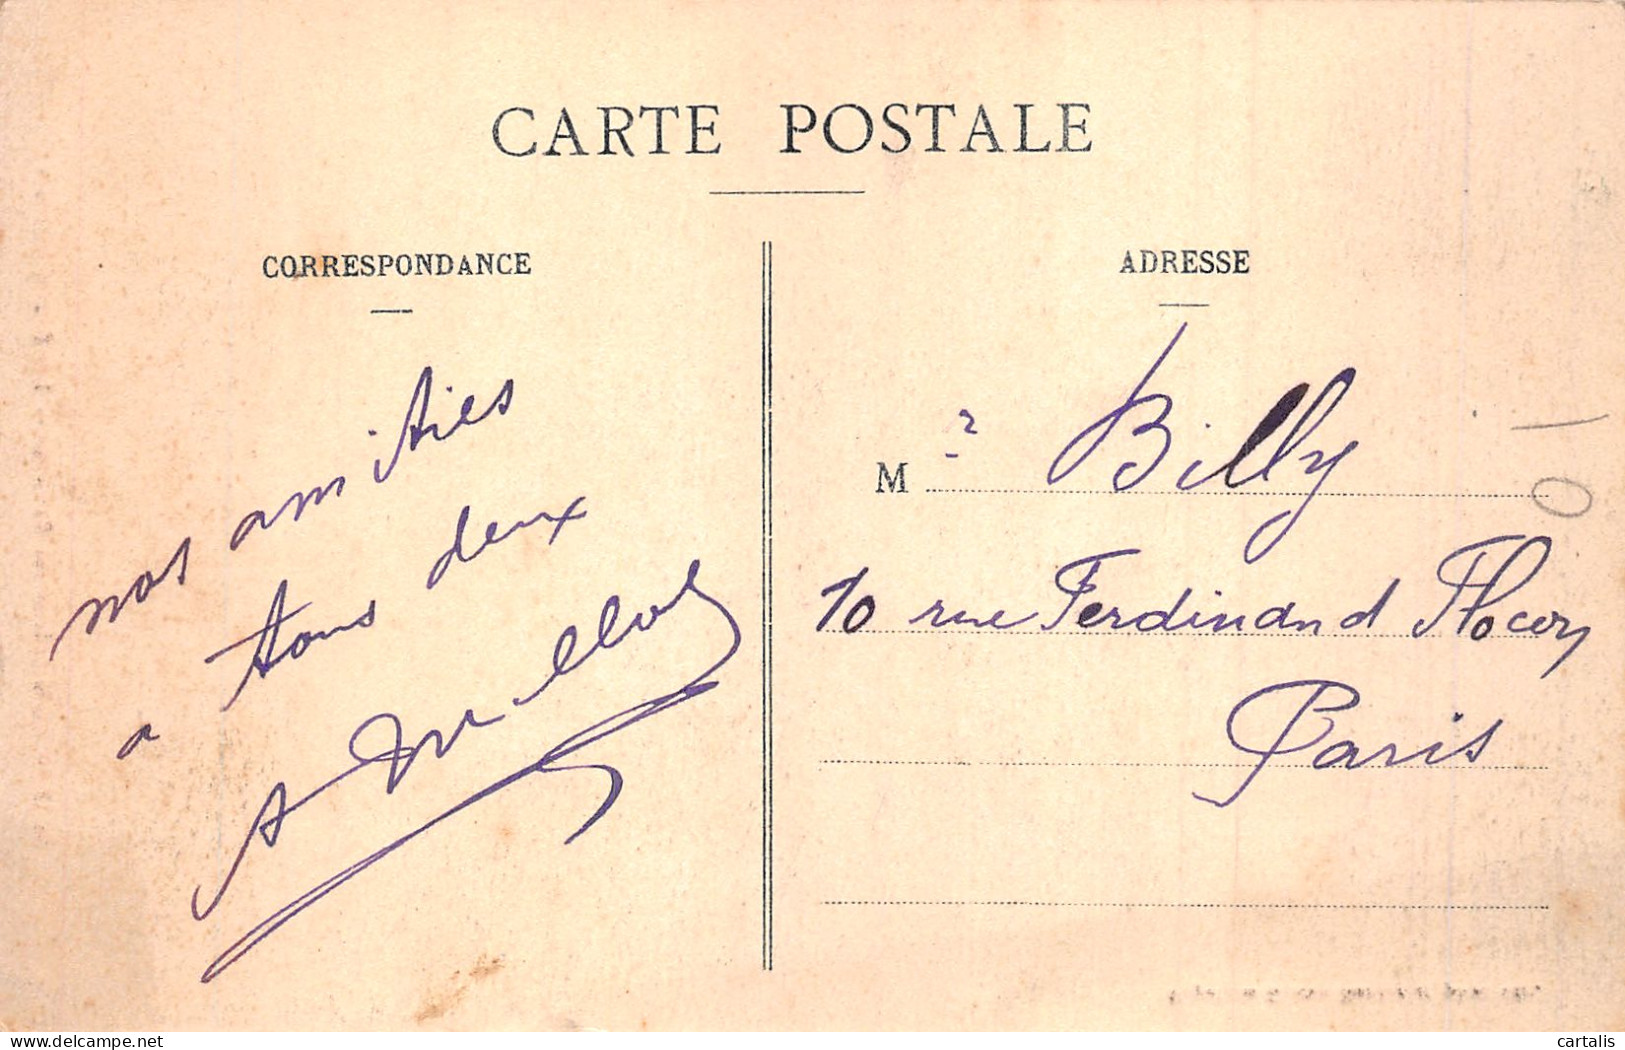 CARTE POSTALE
CORRESPONDANCE
ADRESSE
nos amities
a tous deux
Mr Billy
10 rue Ferdinand Flocon
Paris
10
delcampe.net
cartalis